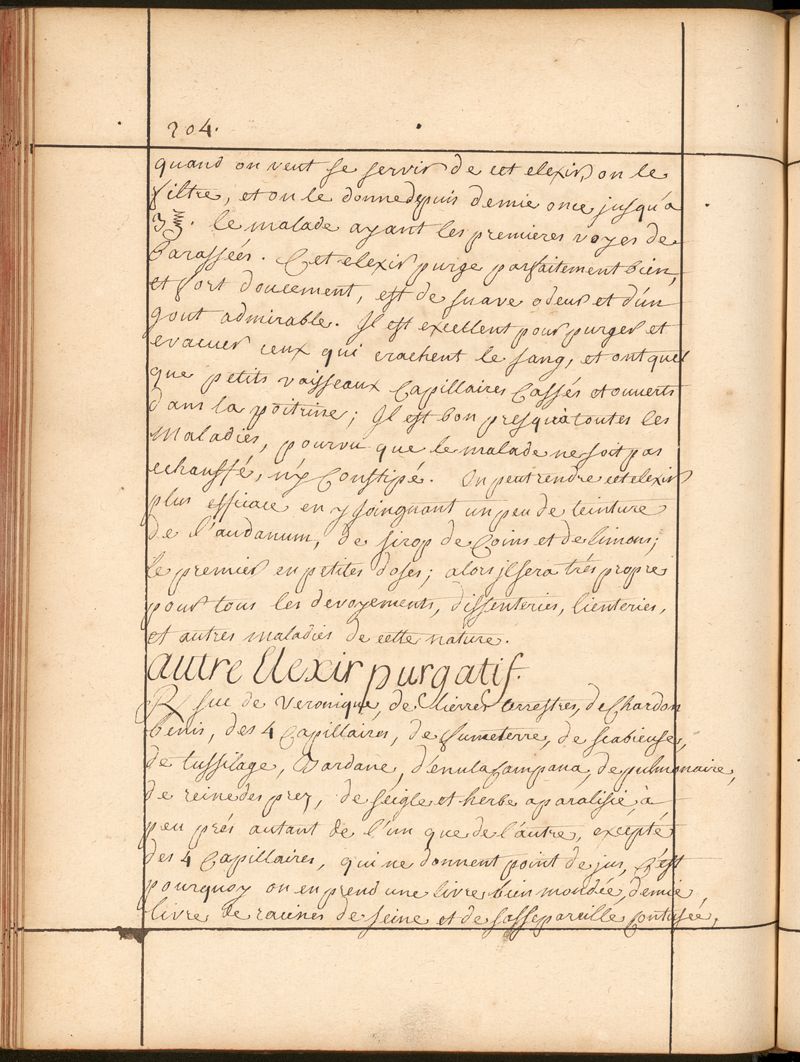 204.
quand on veut se servir de cet elexir, on le
filtre, et on le donne depuis demie once jusqu'a
le malade ayant les premieres voyes de
barassées. Cet elexir purge parfaitement bien,
et fort doucement, est de suave odeur et d'un
gout admirable. Il est excellent pour purger et
evacuer ceux qui crachent le sang, et ont quel
que petits vaisseaux Capillaires Cassés et ouverts
dans la poitrine; Il est bon presqu'a toutes les
Maladies, pourvu que le malade ne soit pas
echauffé, n'y Constipé. On peut rendre cet elexir
plus efficace en y joingnant un peu de teinture
de l'audanum, de sirop de Coins et de limons;
le premier en petites doses; alors il sera trés propre
pour tous les devoyements, dissenteries, lienteries,
et autres maladies de cette nature.
autre Elexir purgatif.
℞ suc de Veronique, de lierre terrestres, de Chardon
benis, des 4 Capillaires, de fumeterre, de scabieuses,
de tussilage, Bardane, d'enula Campana, de pulmonaire,
de reine des prez, de seigle et herbe a paralisie, a
peu prés autant de l'un que de l'autre, excepté
des 4 Capillaires, qui ne donnent point de jus, C'est
pourquoy on en prend une livre bien mondée, demie
livre de racines de seine et de sassepareille Contusée,